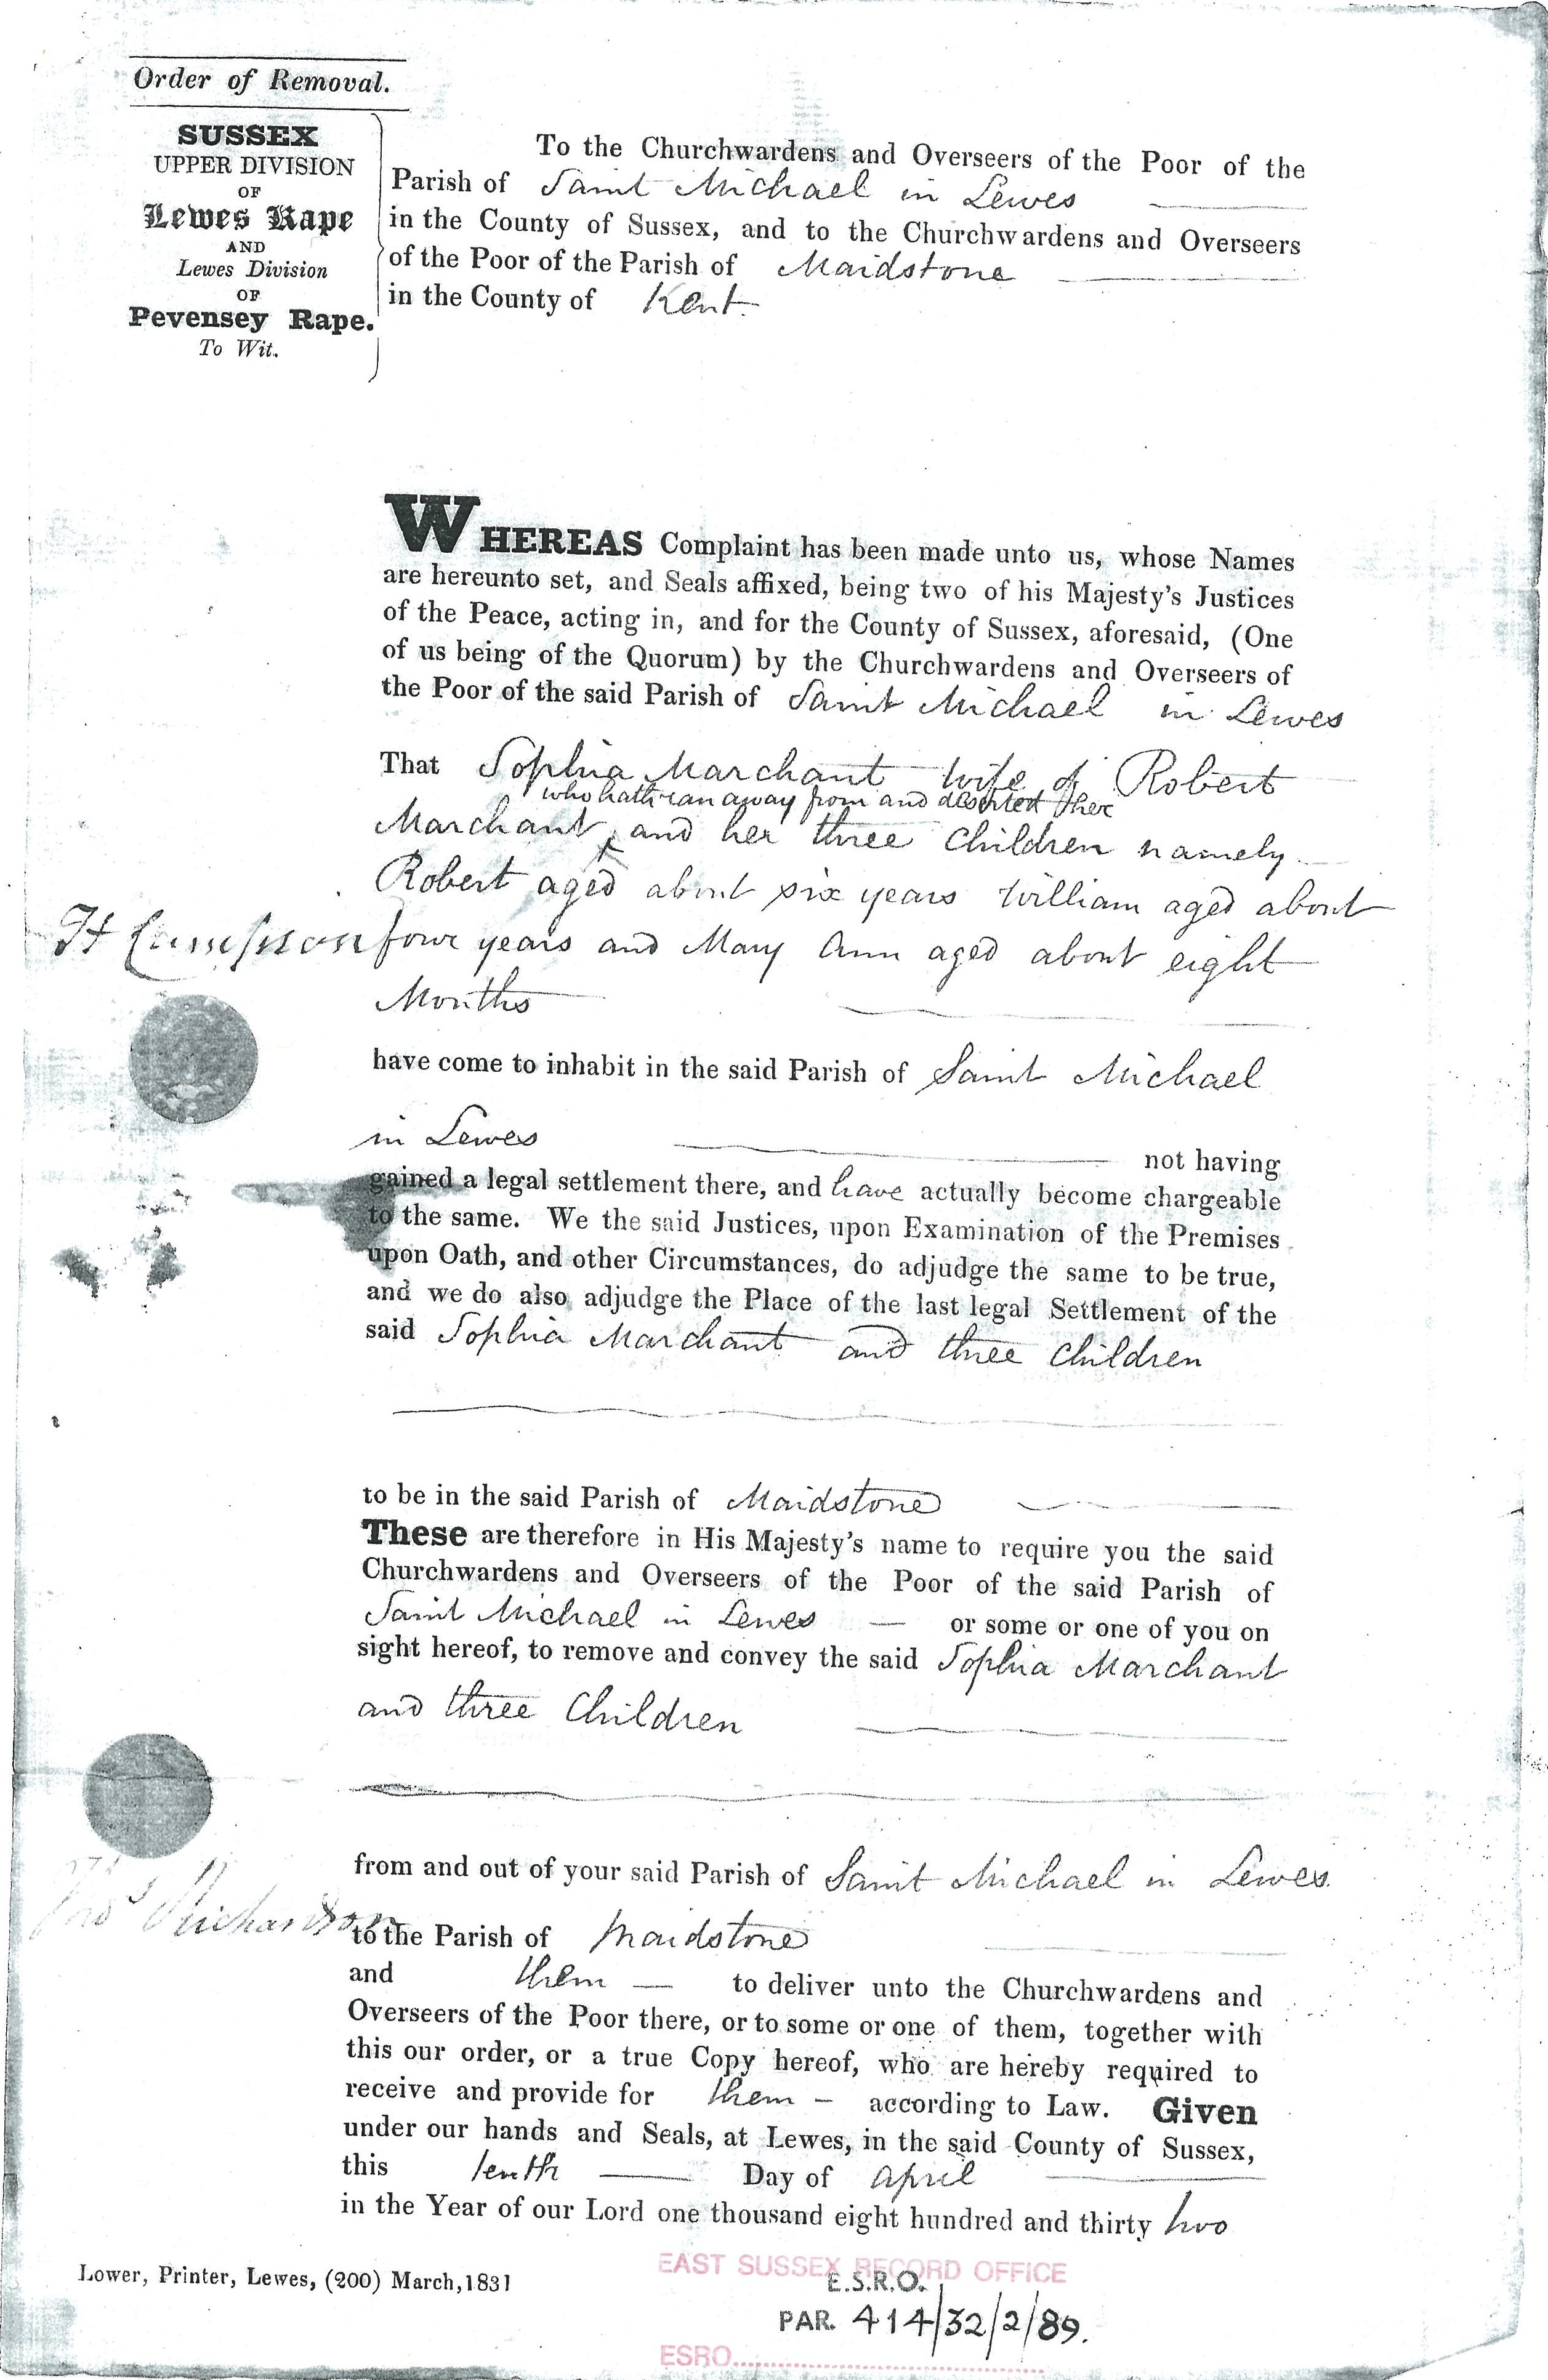 Order of Removal.
SUSSEX
UPPER DIVISION
OF
Lewes Rape
AND
Lewes Division
OF
Pevensey Rape.
To Wit.
To the Churchwardens and Overseers of the Poor of the
Parish of Saint Michael in Lewes
in the County of Sussex, and to the Churchwardens and Overseers
of the Poor of the Parish of Maidstone
in the County of Kent
WHEREAS Complaint has been made unto us, whose Names
are hereunto set, and Seals affixed, being two of his Majesty's Justices
of the Peace, acting in, and for the County of Sussex, aforesaid, (One
of us being of the Quorum) by the Churchwardens and Overseers of
the Poor of the said Parish of Saint Michael in Lewes
That Sophia Marchant wife of Robert
who hath ran away from and deserted her
Marchant and her three Children namely
Robert aged about six years William aged about
four years and Mary Ann aged about eight
Months
H
have come to inhabit in the said Parish of Saint Michael
in Lewes not having
gained a legal settlement there, and have actually become chargeable
to the same. We the said Justices, upon Examination of the Premises
upon Oath, and other Circumstances, do adjudge the same to be true,
and we do also adjudge the Place of the last legal Settlement of the
said Sophia Marchant and three Children
to be in the said Parish of Maidstone
These are therefore in His Majesty's name to require you the said
Churchwardens and Overseers of the Poor of the said Parish of
Saint Michael in Lewes — or some or one of you on
sight hereof, to remove and convey the said Sophia Marchant
and three Children
from and out of your said Parish of Saint Michael in Lewes
Richardson
to the Parish of Maidstone
and them — to deliver unto the Churchwardens and
Overseers of the Poor there, or to some or one of them, together with
this our order, or a true Copy hereof, who are hereby required to
receive and provide for them - according to Law. Given
under our hands and Seals, at Lewes, in the said County of Sussex,
this tenth Day of April
in the Year of our Lord one thousand eight hundred and thirty two
Lower, Printer, Lewes, (200) March, 1831
EAST SUSSEX RECORD OFFICE
E.S.R.O.
PAR. 414/32/2/89.
ESRO